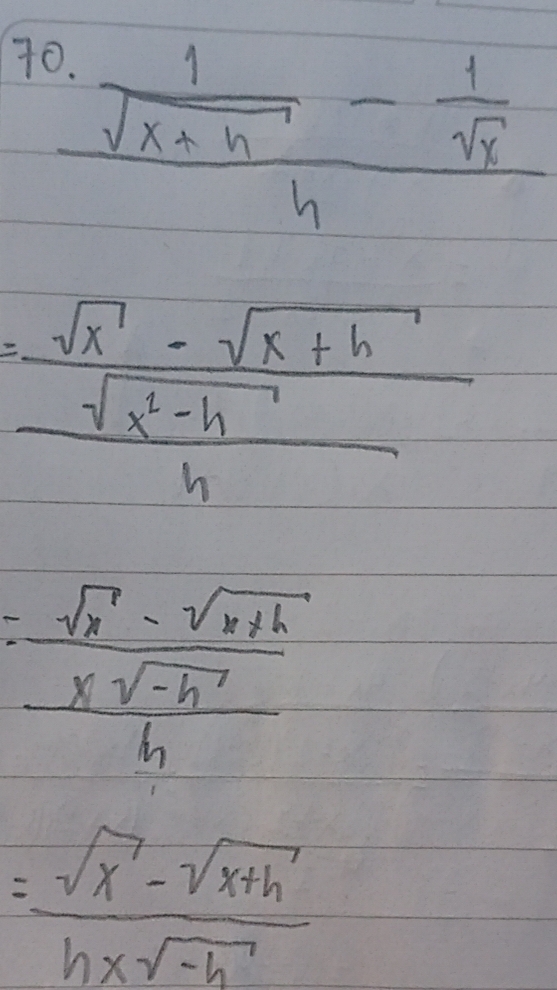 70. (1/√(x + h) - 1/√x)/h
= ((√x - √(x + h))/√(x² - h))/h
= ((√x - √(x+h))/(x√(-h)))/h
= (√x - √(x+h))/(hx√(-h))